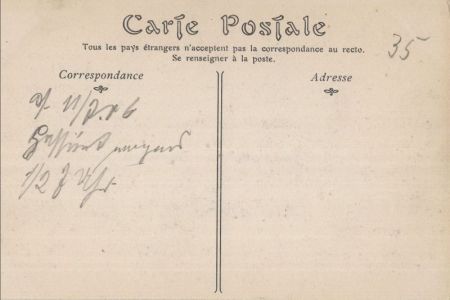 Carte Postale
Tous les pays étrangers n'acceptent pas la correspondance au recto.
Se renseigner à la poste.
35
Correspondance
Adresse
1/2 7 Uhr